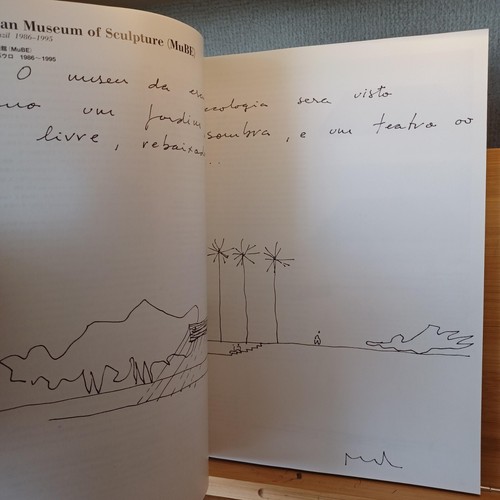 an Museum of Sculpture (MuBE)
1986-1995
館 (MuBE)
ウロ 1986〜1995
O museu da ecologia será visto
um jardim sombra, e um teatro ao
livre, rebaixado...